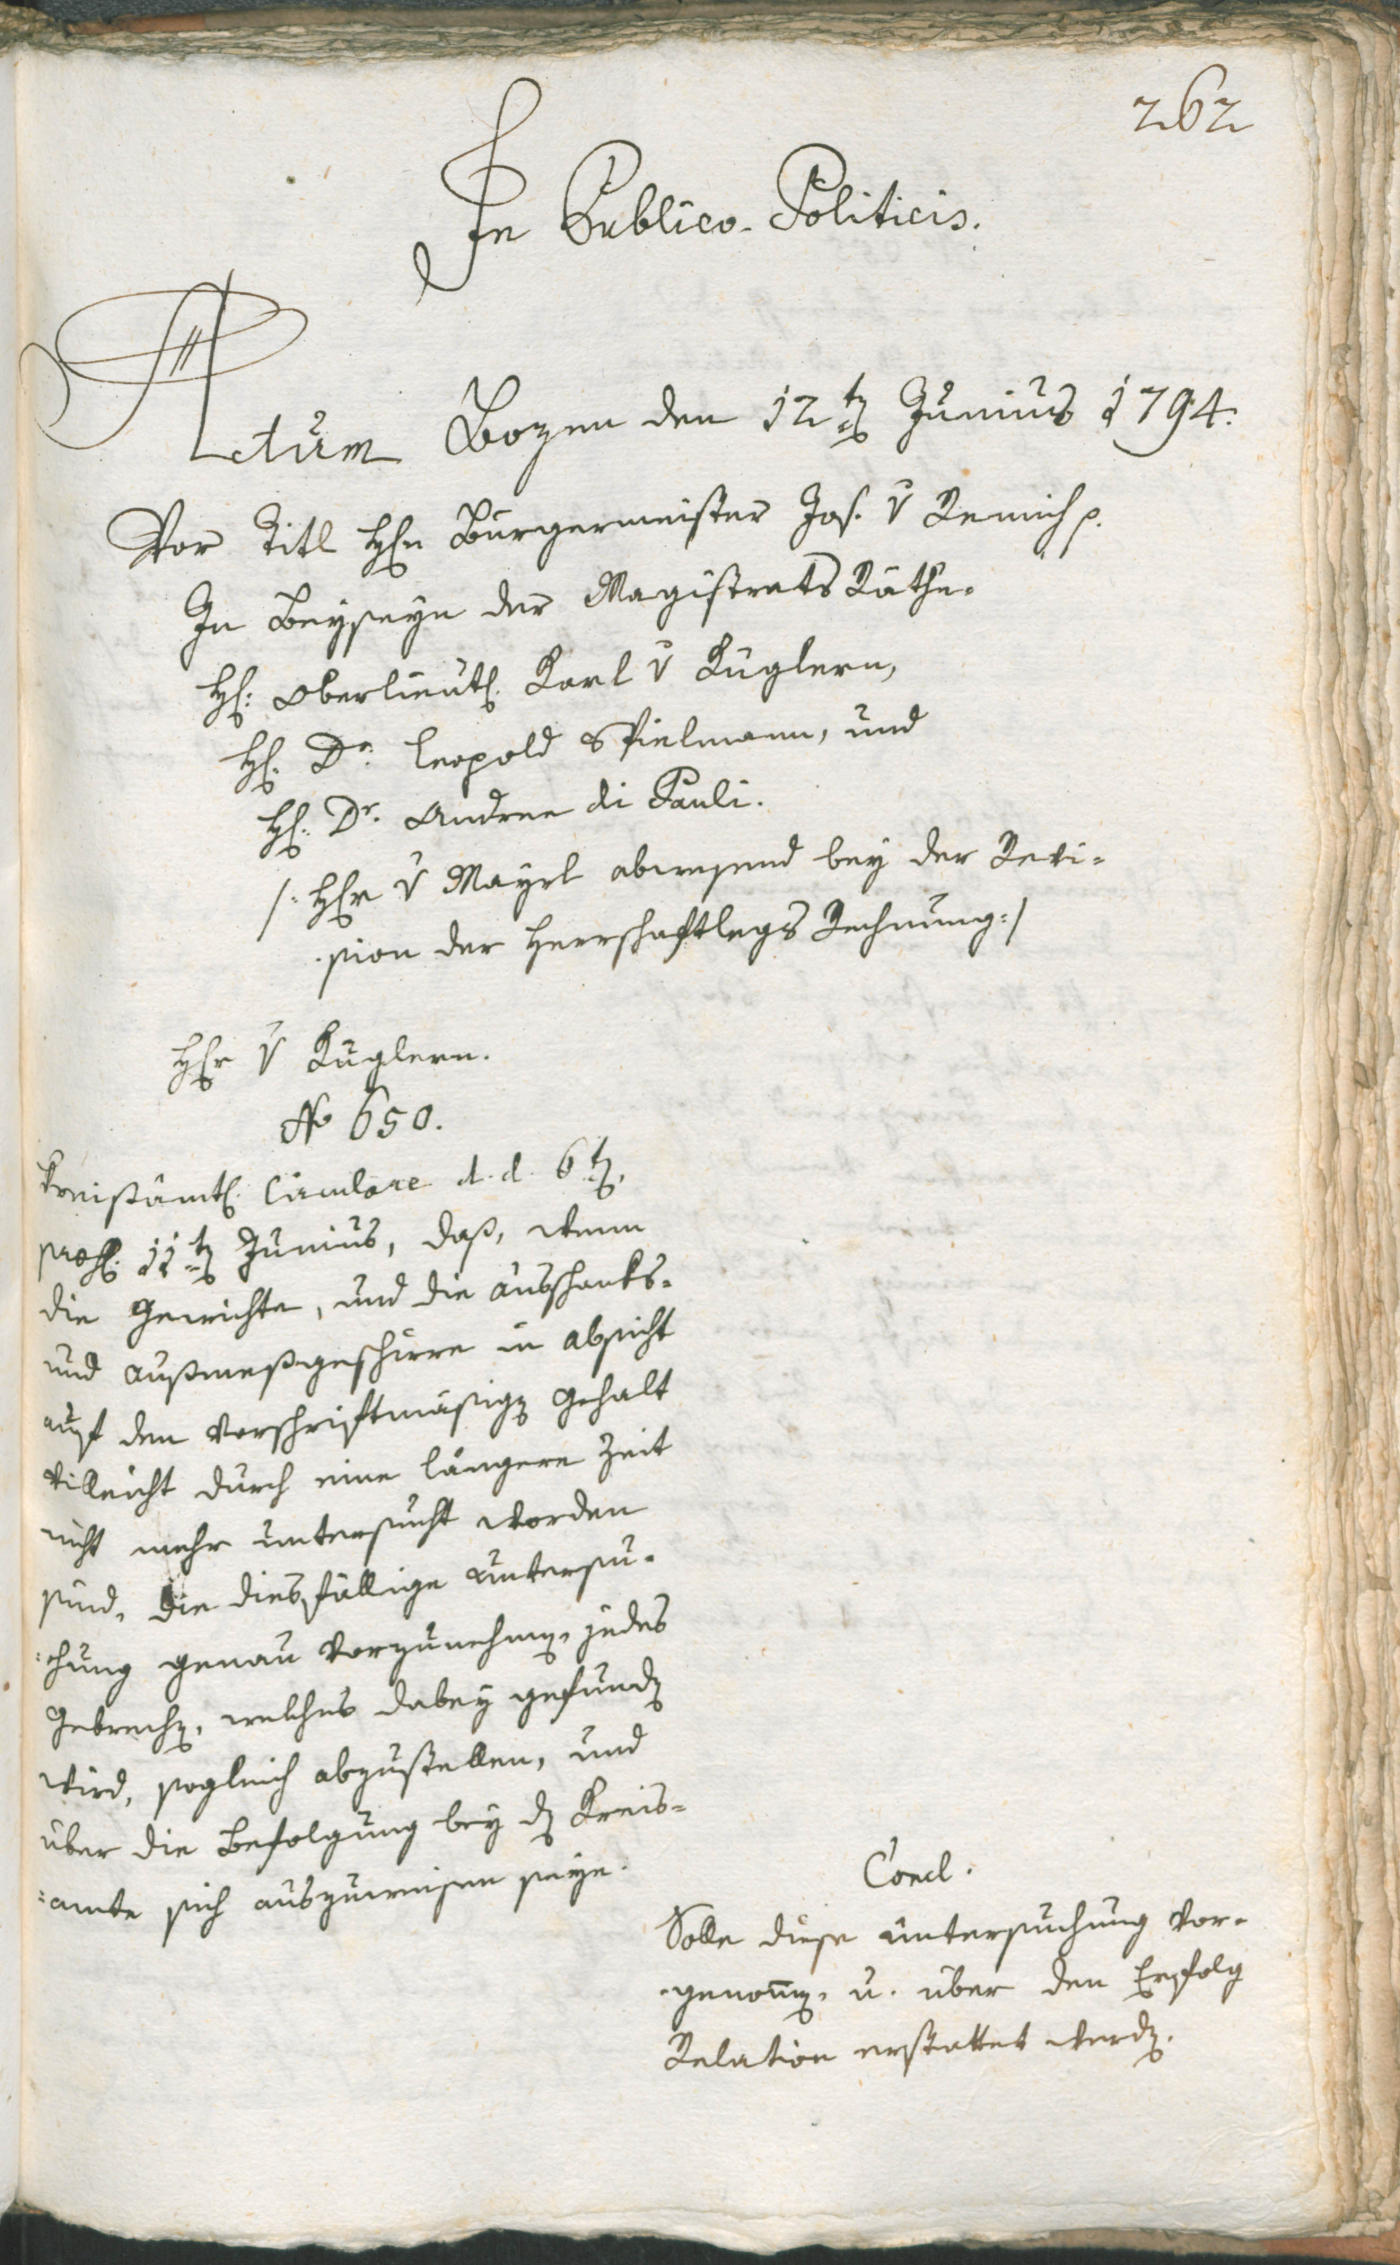 262
In Publico-Politicis.
Actum Bozen den 12ten Junius 1794.
Vor Titl Hℓn Burgermeister Jos. v Remich p.
In Beyseyn der Magistrats Räthe.
H: Oberlieut. Karl v Kuglern,
H. Dr. Leopold Spielmann, und
H. Dr. Andree di Pauli.
/: Hℓr v Mayrl abwesend bey der Revi=
sion der Herrschaftlegs Rechnung :/
Hℓr v Kuglern.
No 650.
Kreisämtl. Circulare d. d. 6ten.
præs. 11ten Junius, daß, wenn
die Gewichte, und die Ausschanks-
und Ausmeßgeschirre in Absicht
auf den vorschriftmäsigen Gehalt
villeicht durch eine längere Zeit
nicht mehr untersucht worden
sind, die diesfällige Untersu-
=chung genau vorzunehmen, jedes
Gebrechen, welches dabey gefunden
wird, sogleich abzustellen, und
über die Befolgung bey dem Kreis-
=amte sich auszuweisen seye.
Concl.
Solle diese Untersuchung vor-
genommen, u. über den Erfolg
Relation erstattet werden.